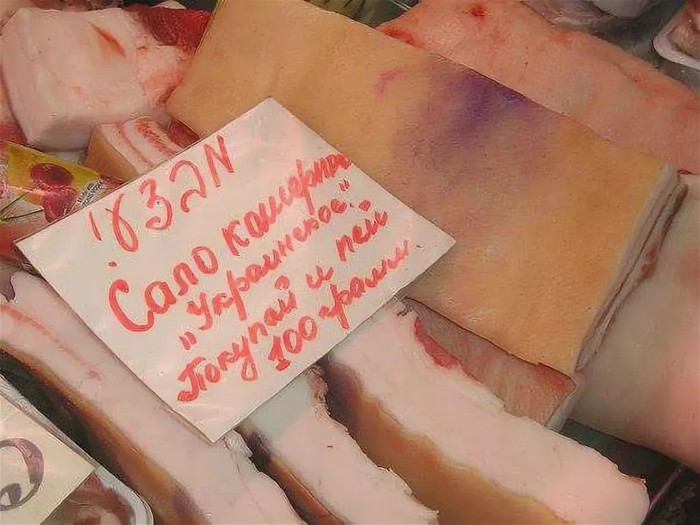 מבצע!
Сало кошерное
"Украинское".
Покупай и пей
100 грамм.